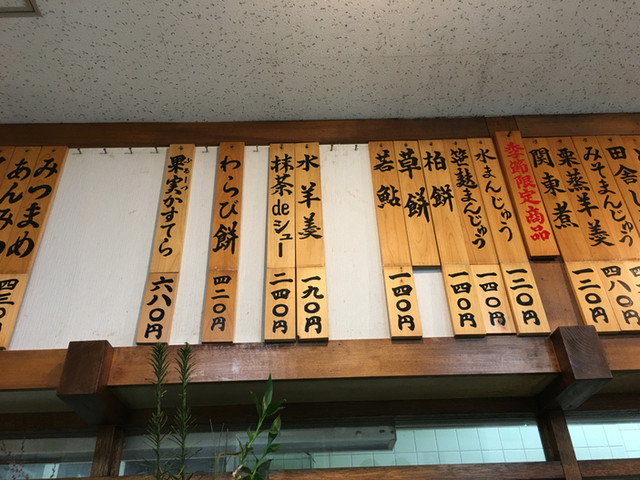 田舎し
みそまんじゅう
四八〇円
粟蒸羊羹
一二〇円
関東煮
季節限定商品
一二〇円
水まんじゅう
一四〇円
笹麩まんじゅう
一四〇円
柏餅
草餅
若鮎
一四〇円
水羊羹
一九〇円
抹茶deシュー
二四〇円
わらび餅
四二〇円
ふるーつ
果実かすてら
六八〇円
みつまめ
あんみつ
四三〇